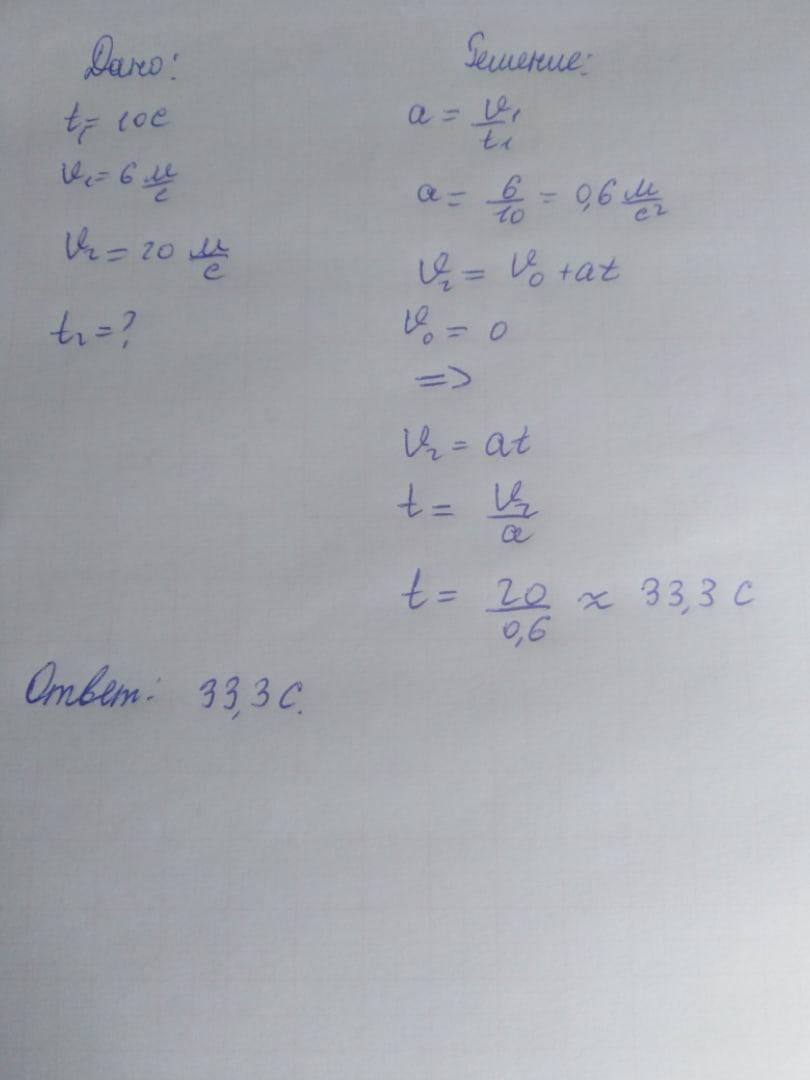 Дано:
t₁= 10с
v₁= 6 м/с
v₂= 20 м/с
t₂=?
Решение:
a = v₁/t₁
a = 6/10 = 0,6 м/с²
v₂ = v₀ + at
v₀ = 0
=>
v₂ = at
t = v₂/a
t = 20/0,6 ≈ 33,3 с
Ответ: 33,3 с.